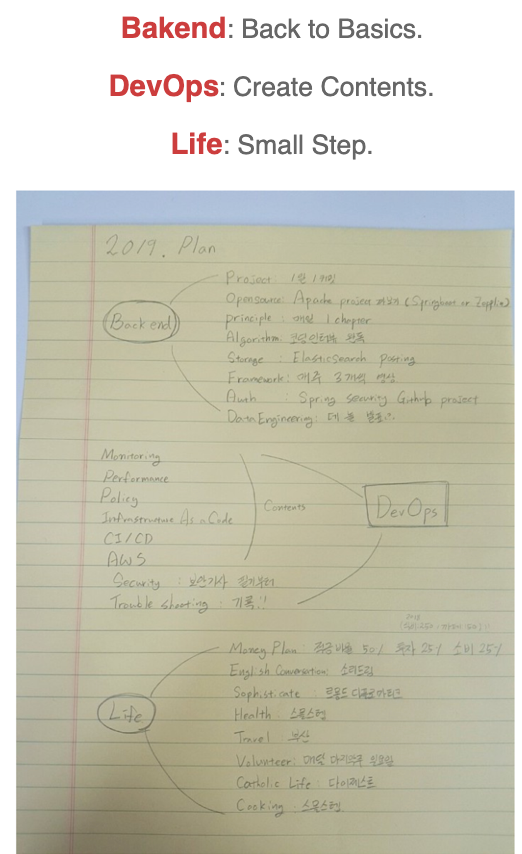 Bakend: Back to Basics.
DevOps: Create Contents.
Life: Small Step.
2019. Plan
Backend
Project : 1일 1커밋
Opensource: Apache project (Springboot or Zepplin)
principle : 매일 1 chapter
Algorithm: 코딩인터뷰 완독
Storage : ElasticSearch Posting
Framework: 매주 3개의 영상
Auth : Spring security Github project
Data Engineering: 데 놀
Monitoring
Performance
Policy
Infrastructure As a Code
CI/CD
AWS
Contents
DevOps
Security : 보안기사 필기부터
Trouble shooting : 기록!!
Life
Money Plan 저금 비율 50% 투자 25% 소비 25%
English Conversation: 소리드림
Sophisticate :
Health : 스몰스텝
Travel : 부산
Volunteer: 매달 마지막주 일요일
Catholic Life : 다이제스트
Cooking : 스몰스텝